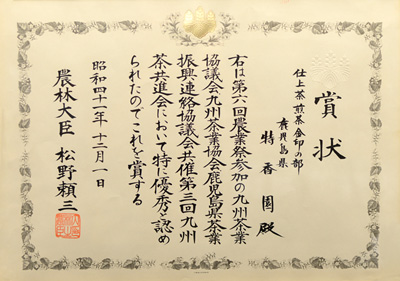 賞状
仕上茶煎茶金印の部
鹿児島県
特香園殿
右は第六回農業祭参加の九州茶業
協議会九州茶業協会鹿児島県茶業
振興連絡協議会共催第三回九州
茶共進会において特に優秀と認め
られたのでこれを賞する
昭和四十一年十二月一日
農林大臣 松野頼三